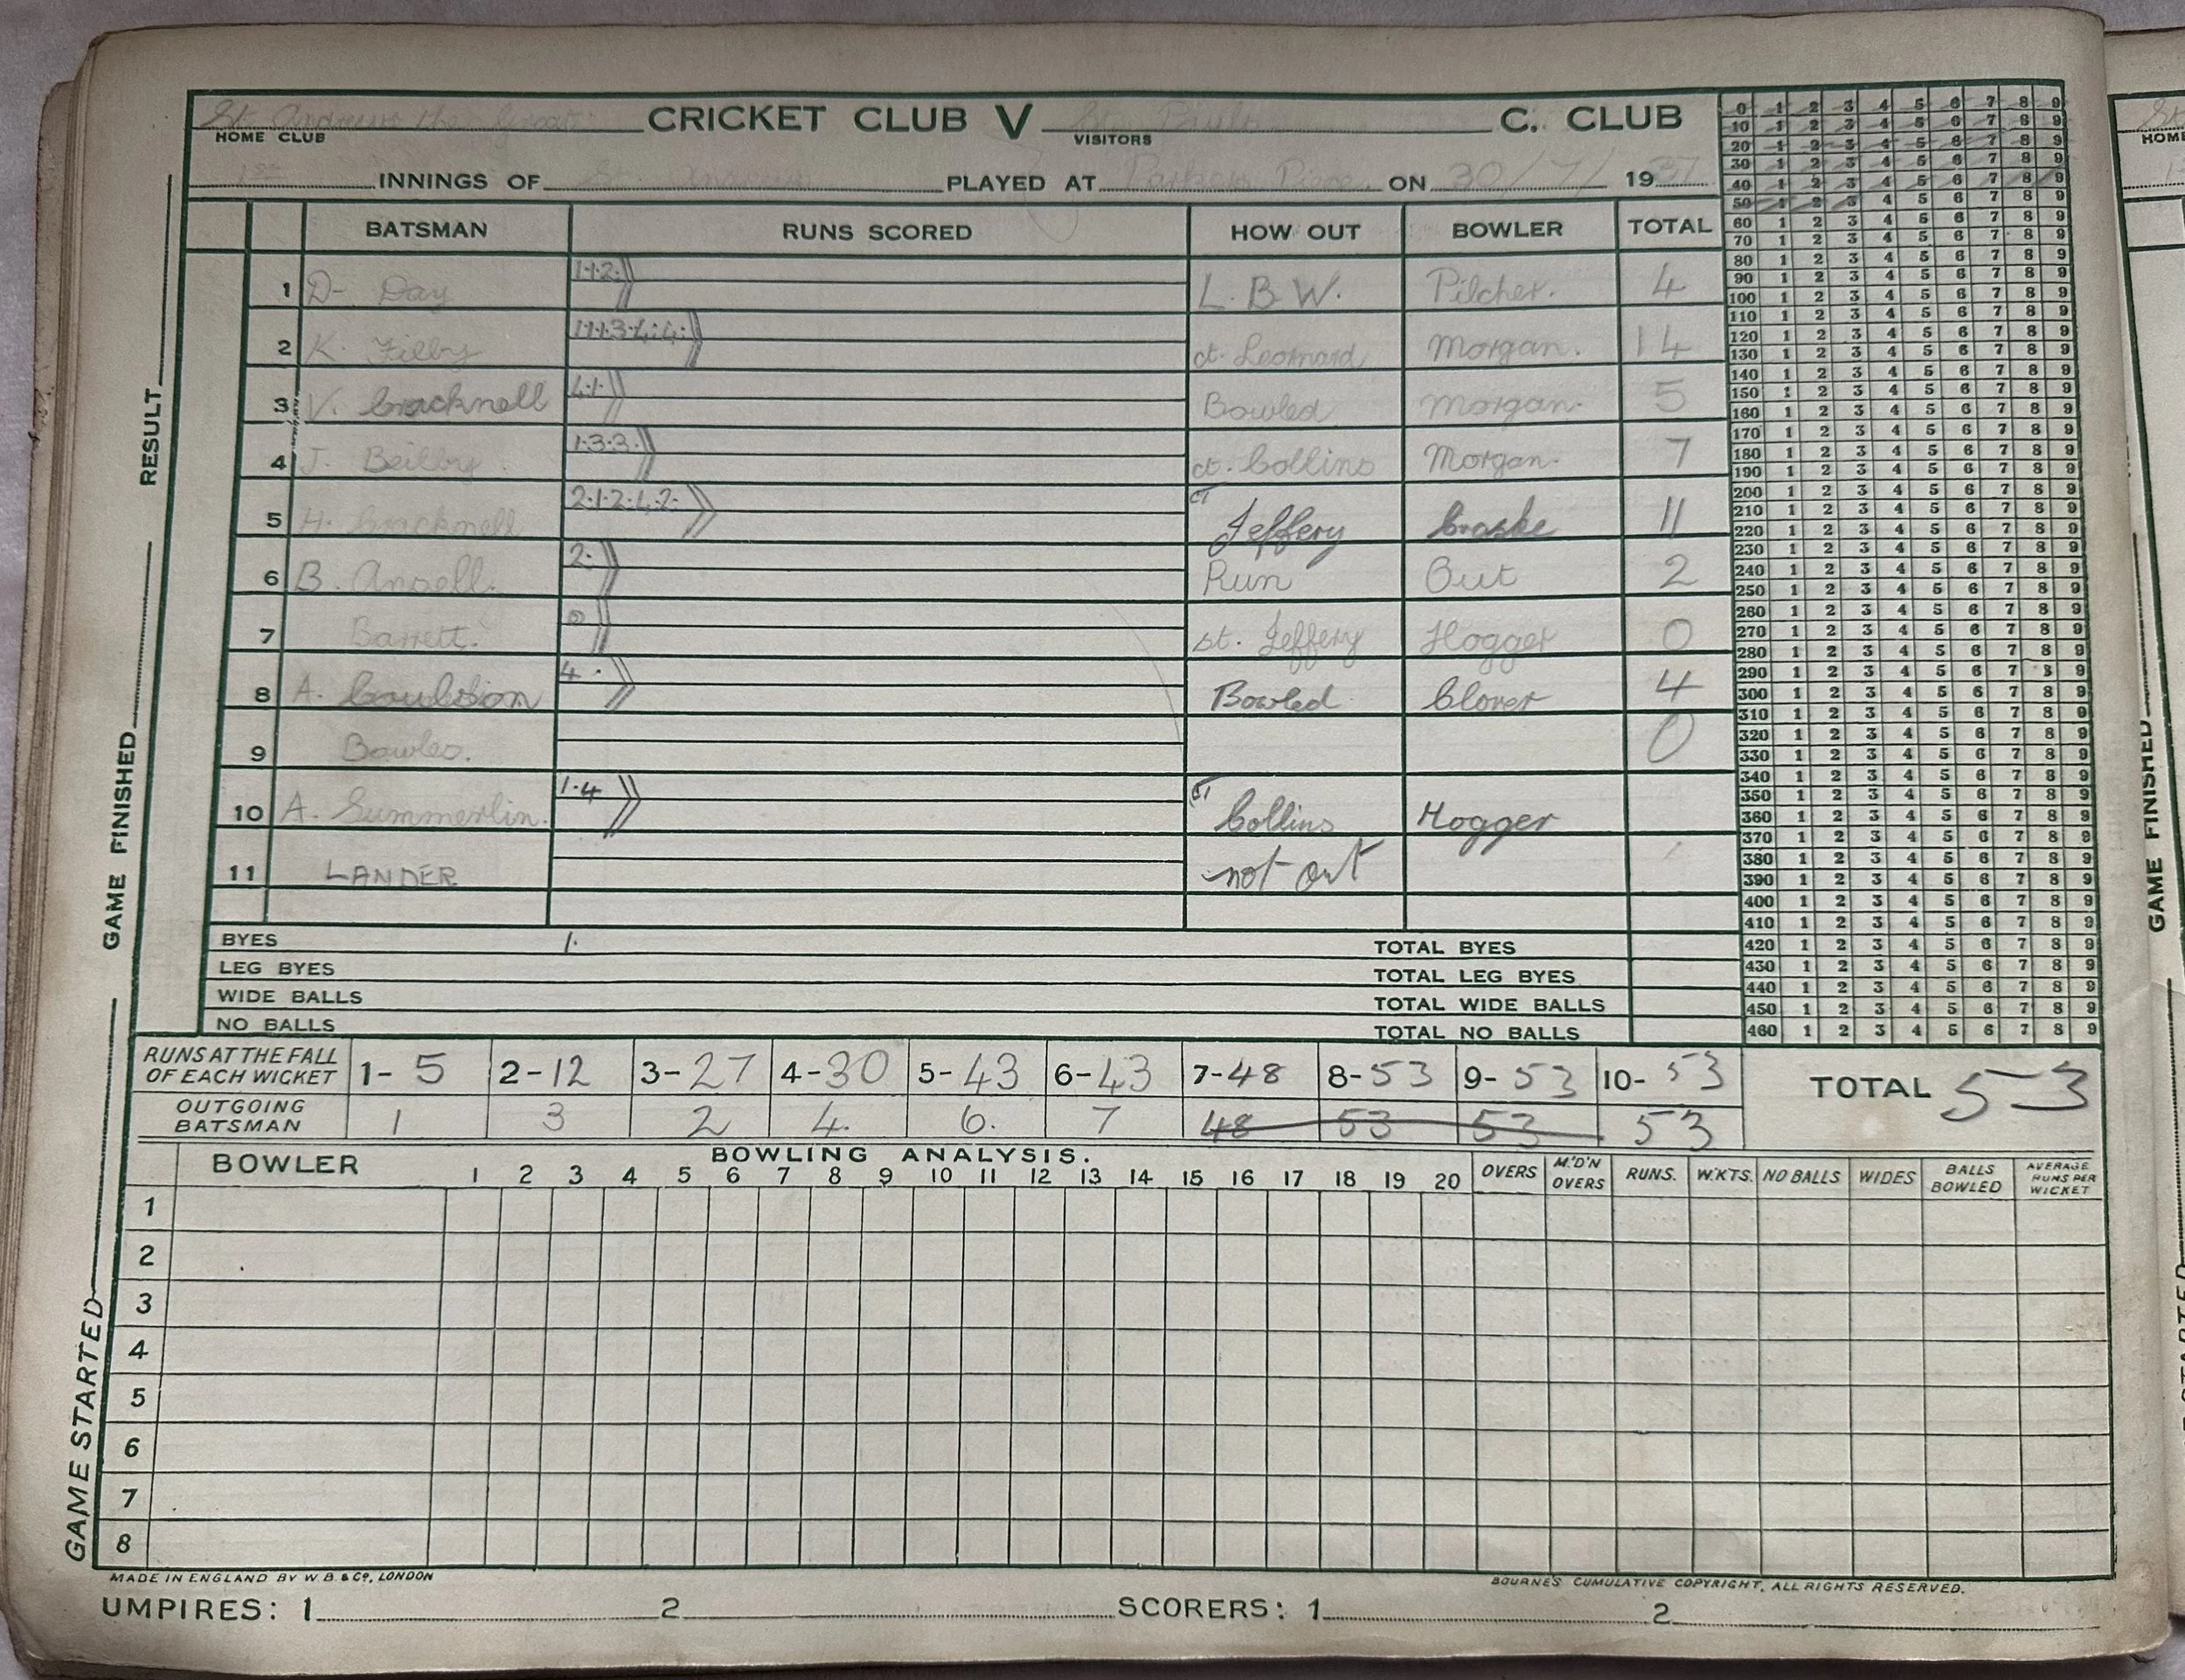 St. Andrews the Great CRICKET CLUB V St. Pauls C. CLUB
HOME CLUB VISITORS
1st INNINGS OF St. Andrews PLAYED AT Parkers Piece ON 30/7/ 1937
BATSMAN RUNS SCORED HOW OUT BOWLER TOTAL
1 D- Day 1·1·2· L.B.W. Pilcher. 4
2 K. Filby 1·1·1·3·4·4· ct. Leonard Morgan. 14
3 V. Cracknell 4·1· Bowled Morgan. 5
4 J. Beilby. 1·3·3· ct. Collins Morgan. 7
5 H. Cracknell 2·1·2·4·2· CT Jeffery Craske 11
6 B. Ansell. 2· Run Out 2
7 Barrett. 0 st. Jeffery Hogger 0
8 A. Coulson 4· Bowled Clover 4
9 Bowles. 0
10 A. Summerlin. 1·4 CT Collins Hogger
11 LANDER not out
BYES 1· TOTAL BYES
LEG BYES TOTAL LEG BYES
WIDE BALLS TOTAL WIDE BALLS
NO BALLS TOTAL NO BALLS
RUNS AT THE FALL OF EACH WICKET 1- 5 2- 12 3- 27 4- 30 5- 43 6- 43 7- 48 8- 53 9- 53 10- 53 TOTAL 53
OUTGOING BATSMAN 1 3 2 4. 6. 7 48 53 53 53
BOWLING ANALYSIS.
BOWLER 1 2 3 4 5 6 7 8 9 10 11 12 13 14 15 16 17 18 19 20 OVERS M'D'N OVERS RUNS. W.KTS. NO BALLS WIDES BALLS BOWLED AVERAGE RUNS PER WICKET
1
2
3
4
5
6
7
8
MADE IN ENGLAND BY W.B. & CO, LONDON BOURNE'S CUMULATIVE COPYRIGHT, ALL RIGHTS RESERVED.
UMPIRES: 1 2 SCORERS: 1 2
GAME STARTED GAME FINISHED RESULT
0 1 2 3 4 5 6 7 8 9
10 1 2 3 4 5 6 7 8 9
20 1 2 3 4 5 6 7 8 9
30 1 2 3 4 5 6 7 8 9
40 1 2 3 4 5 6 7 8 9
50 1 2 3 4 5 6 7 8 9
60 1 2 3 4 5 6 7 8 9
70 1 2 3 4 5 6 7 8 9
80 1 2 3 4 5 6 7 8 9
90 1 2 3 4 5 6 7 8 9
100 1 2 3 4 5 6 7 8 9
110 1 2 3 4 5 6 7 8 9
120 1 2 3 4 5 6 7 8 9
130 1 2 3 4 5 6 7 8 9
140 1 2 3 4 5 6 7 8 9
150 1 2 3 4 5 6 7 8 9
160 1 2 3 4 5 6 7 8 9
170 1 2 3 4 5 6 7 8 9
180 1 2 3 4 5 6 7 8 9
190 1 2 3 4 5 6 7 8 9
200 1 2 3 4 5 6 7 8 9
210 1 2 3 4 5 6 7 8 9
220 1 2 3 4 5 6 7 8 9
230 1 2 3 4 5 6 7 8 9
240 1 2 3 4 5 6 7 8 9
250 1 2 3 4 5 6 7 8 9
260 1 2 3 4 5 6 7 8 9
270 1 2 3 4 5 6 7 8 9
280 1 2 3 4 5 6 7 8 9
290 1 2 3 4 5 6 7 8 9
300 1 2 3 4 5 6 7 8 9
310 1 2 3 4 5 6 7 8 9
320 1 2 3 4 5 6 7 8 9
330 1 2 3 4 5 6 7 8 9
340 1 2 3 4 5 6 7 8 9
350 1 2 3 4 5 6 7 8 9
360 1 2 3 4 5 6 7 8 9
370 1 2 3 4 5 6 7 8 9
380 1 2 3 4 5 6 7 8 9
390 1 2 3 4 5 6 7 8 9
400 1 2 3 4 5 6 7 8 9
410 1 2 3 4 5 6 7 8 9
420 1 2 3 4 5 6 7 8 9
430 1 2 3 4 5 6 7 8 9
440 1 2 3 4 5 6 7 8 9
450 1 2 3 4 5 6 7 8 9
460 1 2 3 4 5 6 7 8 9
HOME
GAME FINISHED